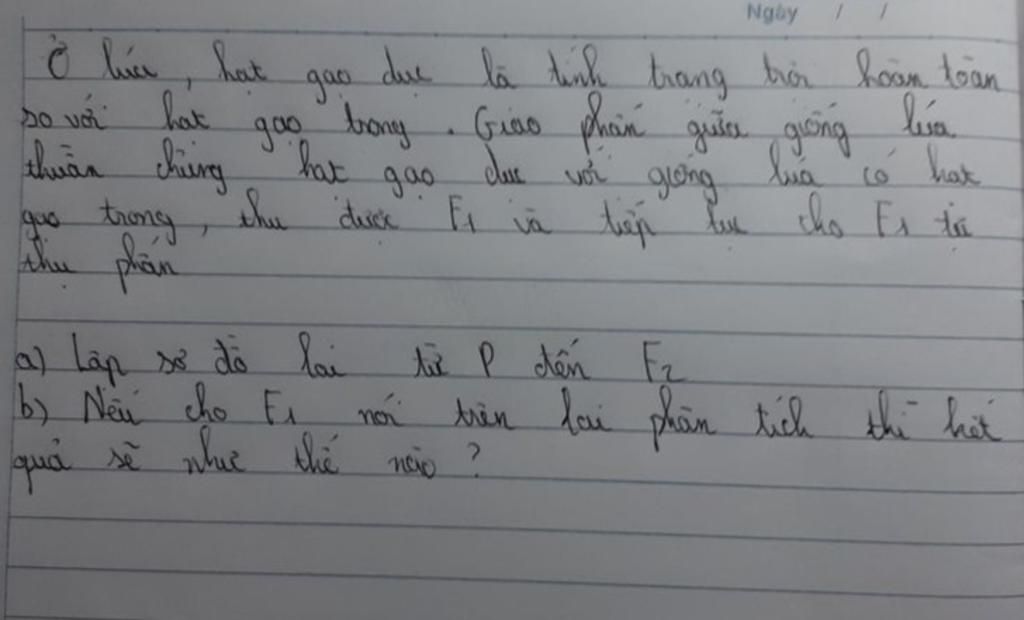 Ngày / /
Ở lúa, hạt gạo đục là tính trạng trội hoàn toàn
so với hạt gạo trong. Giao phấn giữa giống lúa
thuần chủng hạt gạo đục với giống lúa có hạt
gạo trong, thu được F1 và tiếp tục cho F1 tự
thụ phấn
a) Lập sơ đồ lai từ P đến F2
b) Nếu cho F1 nói trên lai phân tích thì kết
quả sẽ như thế nào?